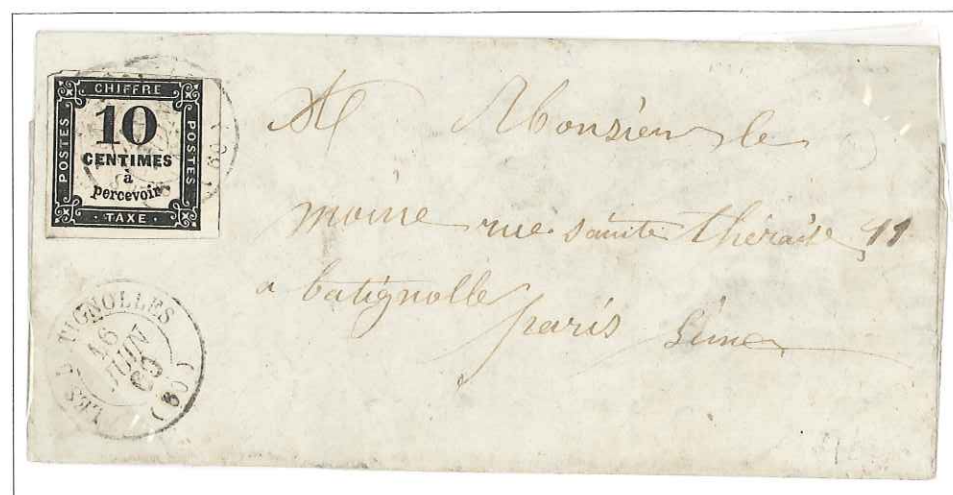 CHIFFRE
POSTES
10
CENTIMES
à
percevoir
POSTES
TAXE
(60)
A Monsieur le
moine rue sainte theraise 11
a batignolle
paris Seine
LES BATIGNOLLES
16
JUIN
60
(60)